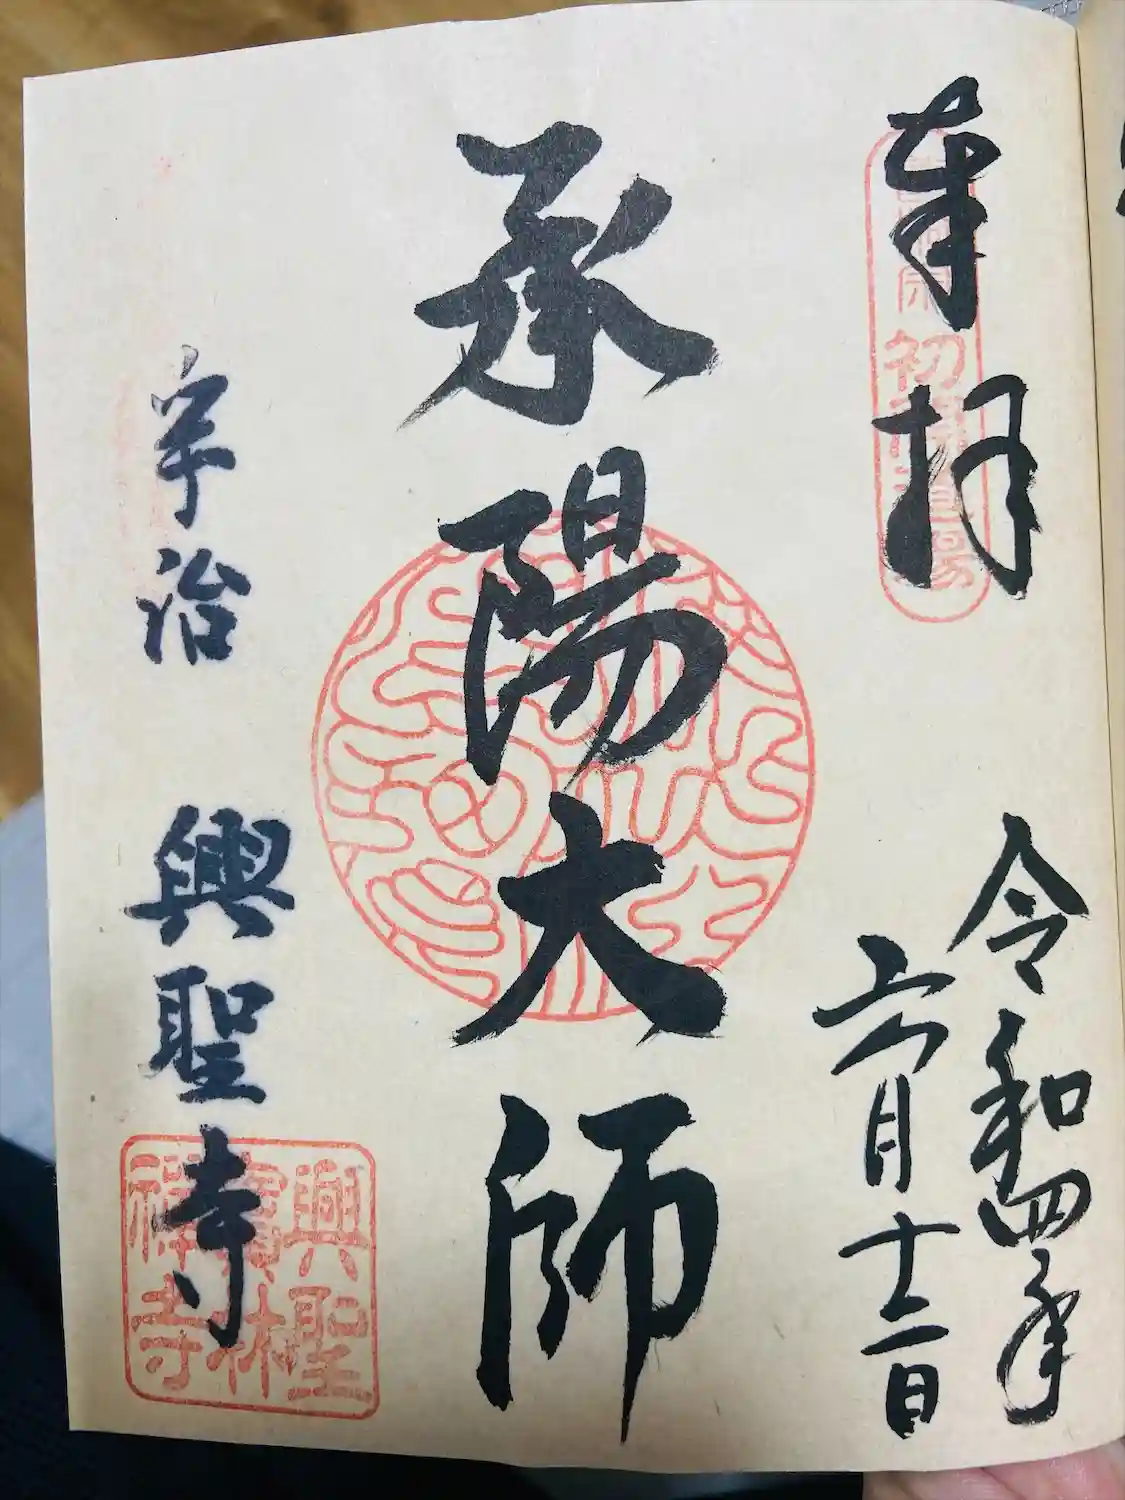 奉拝
令和四年
六月十二日
承陽大師
宇治
興聖寺
興聖
寶林
禅寺